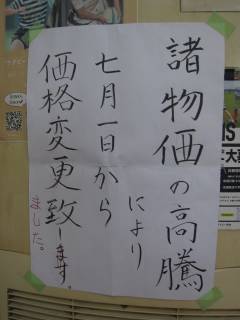 諸物価の高騰
により
七月一日から
価格変更致します。
ました。